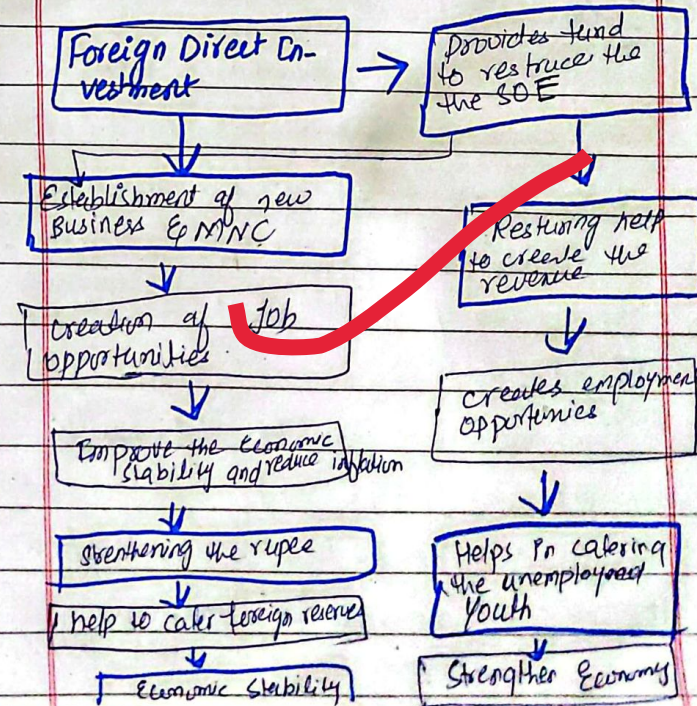 Foreign Direct In-
vestment
Provides fund
to restruce the
the SOE
Establishment of new
Business & MNC
Creation of Job
opportunities
Improve the Economic
stability and reduce inflation
Strenthening the rupee
help to cater foreign reserves
Economic Stability
Resturing help
to create the
revenue
Creates employmen
opportunies
Helps in catering
the unemployed
Youth
Strengther Economy